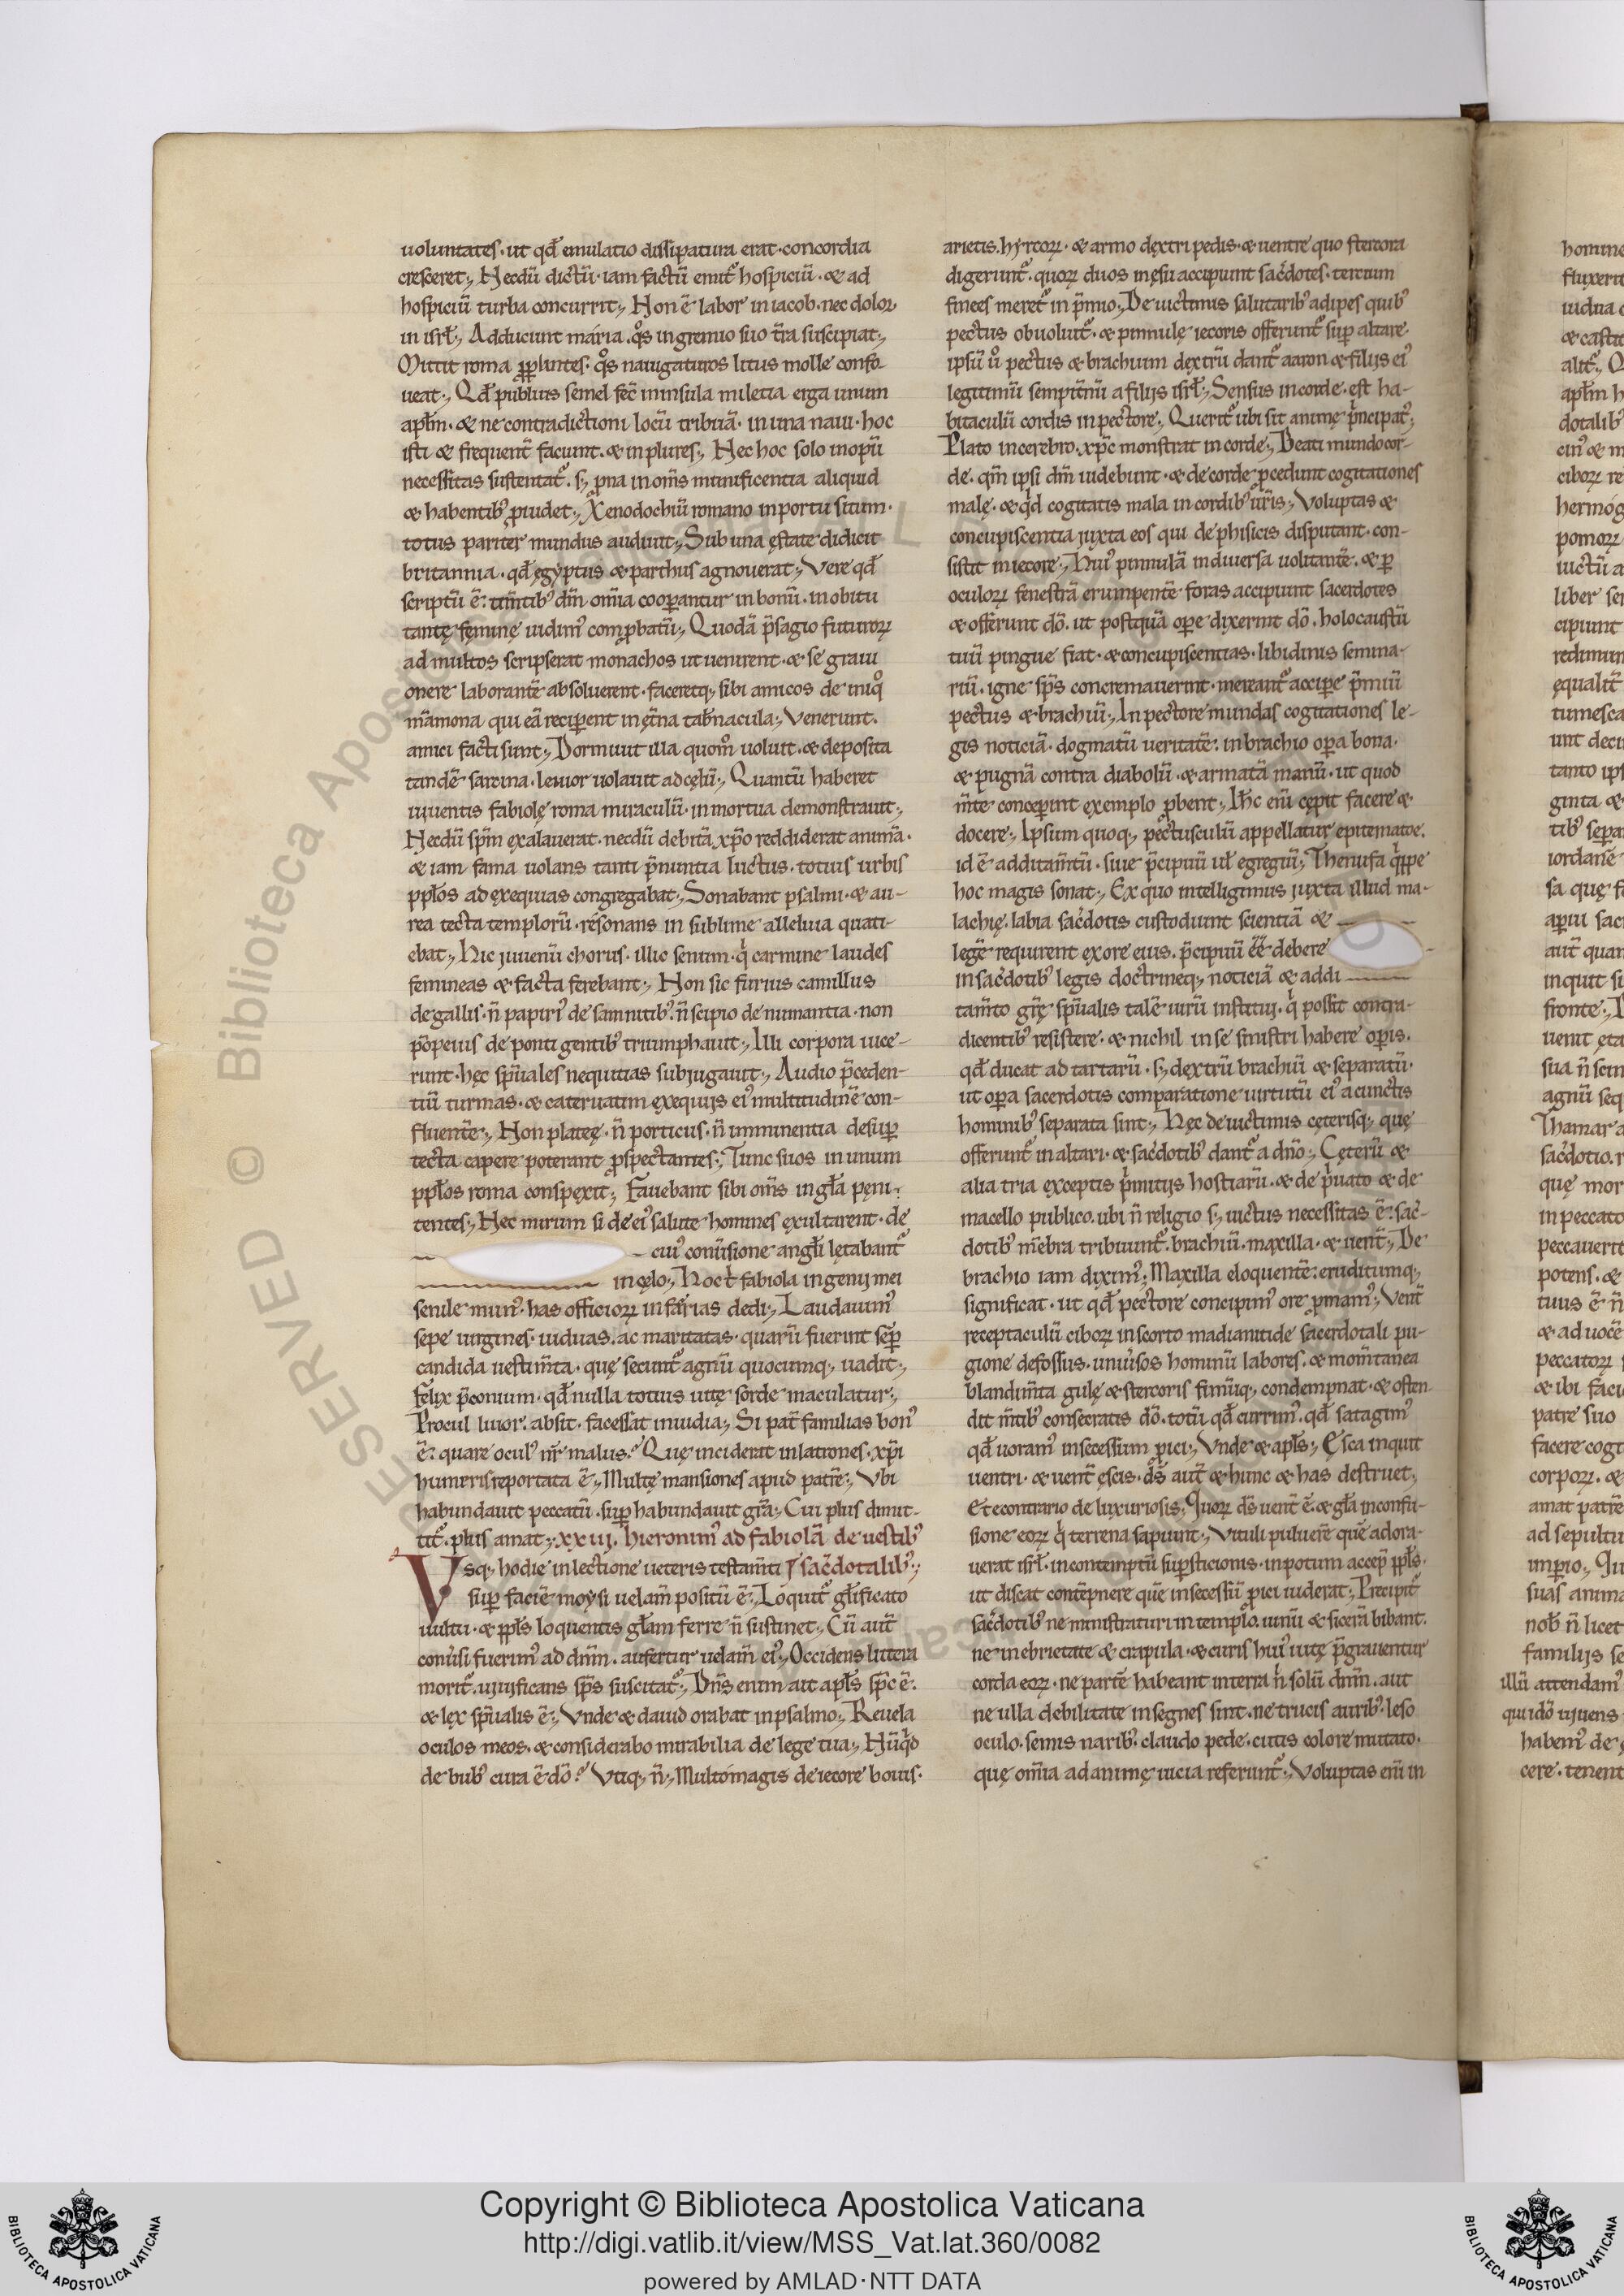 uoluntates. ut qđ emulatio dissipatura erat. concordia
cresceret;, Necdū dictū. iam factū emit᷑ hospiciū. & ad
hospiciū turba concurrit;, Non ē labor in iacob. nec dolor
in isrł;, Adducunt maria. qͦs in gremio suo t̄ra suscipiat;,
Mittit roma ꝓperantes. qͦs nauigaturos litus molle confo-
ueat;, Qđ publius semel fec̄ in insula miletia erga unum
apłm. & ne contradictioni locū tribuā. in una naui. hoc
isti & frequent̄ faciunt. & in plures;, Nec hoc solo inopū
necessitas sustentat᷑. s; ꝓna in om̄s munificentia aliquid
& habentibꝰ ꝓuidet;, Xenodochiū romano in portu situm.
totus pariter mundus audiuit;, Sub una ęstate didicit
britannia. qđ ęgyptus & parthus agnouerat;, Vere qđ
scriptū ē. tim̄tibꝰ dm̄ om̄ia cooꝑantur in bonū. in obitu
tantę feminę uidimꝰ comꝓbatū;, Quodā p̄sagio futuroꝝ
ad multos scripserat monachos ut uenirent. & se graui
onere laborantē absoluerent. faceretq; sibi amicos de iniqͦ
māmona qui eā reciꝑent in ęt̄na tab̄nacula;, Venerunt.
amici facti sunt;, Dormiuit illa quomͦ uoluit. & deposita
tandē sarcina. leuior uolauit ad cęlū;, Quantū haberet
uiuentis fabiolę roma miraculū. in mortua demonstrauit;,
Necdū spm̄ exalauerat. necdū debitā xp̄o reddiderat animā.
& iam fama uolans tanti p̄nuntia luctus. totius urbis
ppłos ad exequias congregabat;, Sonabant psalmi. & au-
rea tecta templorū. resonans in sublime alleluia quati-
ebat;, Hic iuuenū chorus. illic senum. qͥ carmine laudes
femineas & facta ferebant;, Non sic furius camillus
de gallis. n̄ papirꝰ de samnitibꝰ. n̄ scipio de numantia. non
pōpeius de ponti gentibꝰ triumphauit;, Illi corpora uice-
runt. hęc spūales nequitias subjugauit;, Audio p̄ceden-
tiū turmas. & cateruatim exequijs eiꝰ multitudinē con-
fluentē;, Non plateę. n̄ porticus. n̄ imminentia desuꝑ
tecta capere poterant ꝓspectantes;, Tunc suos in unum
ppłos roma conspexit;, Fauebant sibi om̄s in głā pęni-
tentes;, Nec mirum si de eiꝰ salute homines exultarent. de
cuiꝰ conūsione angłi lętabant᷑
in cęlo;, Hoc t̄ fabiola ingenij mei
senile munꝰ. has officioꝝ inferias dedi;, Laudauimꝰ
sepe uirgines. uiduas. ac maritatas. quarū fuerint seꝑ
candida uestim̄ta. quę secunt᷑ agnū quocumq; uadit;,
Felix p̄conium. qđ nulla totius uitę sorde maculatur;,
Procul liuor. absit. facessat inuidia;, Si pat̄ familias bonꝰ
ē. quare oculꝰ nr̄ malus? Quę inciderat in latrones. xp̄i
humeris reportata ē;, Multę mansiones apud patrē;, Vbi
habundauit peccatū. suꝑhabundauit gr̄a;, Cui plus dimit-
tit᷑. plus amat;, xxiij. hieronimꝰ ad fabiolā de uestibꝰ
Vsq; hodie in lectione ueteris testam̄ti sac̄dotalibꝰ;,
suꝑ faciē moysi uelam̄ positū ē;, Loquit᷑ głificato
uultu. & ppłs loquentis głam ferre n̄ sustinet;, Cū aut̄
conūsi fuerimꝰ ad dn̄m. aufertur uelam̄ eiꝰ;, Occidens littera
morit᷑. uiuificans sp̄s suscitat᷑;, Dn̄s enim ait apłs sp̄c ē.
& lex spūalis ē;, Vnde & dauid orabat in psalmo;, Reuela
oculos meos. & considerabo mirabilia de lege tua;, Nūqͥd
de bubꝰ cura ē dō? Vtiq; n̄;, Multomagis de iecore bouis.
arietis. hyrcoꝝ. & armo dextri pedis. & uentre quo stercora
digerunt᷑. quoꝝ duos in ęsū accipiunt sac̄dotes. tertium
finees meret᷑ in p̄mio;, De uictimis salutaribꝰ adipes quibꝰ
pectus obuoluit᷑. & pinnulę iecoris offerunt᷑ suꝑ altare.
ipsū uͦ pectus & brachium dextrū dant᷑ aaron & filijs eiꝰ
legitimū sempit̄nū a filijs isrł;, Sensus in corde. est ha-
bitaculū cordis in pectore;, Querit᷑ ubi sit animę pͥncipatꝰ;,
Plato in cerebro. xp̄c monstrat in corde;, Beati mundo cor-
de. qm̄ ipsi dm̄ uidebunt. & de corde ꝓcedunt cogitationes
malę. & qͥd cogitatis mala in cordibꝰ ur̄is;, Voluptas &
concupiscentia juxta eos qui de phisicis disputant. con-
sistit in iecore;, Huiꝰ pinnulā in diuersa uolitantē. & ꝑ
oculoꝝ fenestrā erumpentē foras accipiunt sacerdotes
& offerunt dō. ut postquā oꝑe dixerint dō. holocaustū
tuū pingue fiat. & concupiscentias. libidinis semina-
riū. igne sp̄s concremauerint. mereant᷑ acciꝑe p̄miū
pectus & brachiū;, In pectore mundas cogitationes le-
gis noticiā. dogmatū ueritatē. in brachio oꝑa bona.
& pugnā contra diabolū. & armatā manū. ut quod
m̄te conceꝑint exemplo ꝓbent;, Ih̄c enī cępit facere &
docere;, Ipsum quoq; pectusculū appellatur epitematoe.
id ē additam̄tū. siue p̄cipuū uł egregiū;, Thenufa qͥppe
hoc magis sonat;, Ex quo intelligimus juxta illud ma-
lachię. labia sac̄dotis custodiunt scientiā &
legē requirent ex ore eius. p̄cipuū ēē debere
in sac̄dotibꝰ legis doctrineq; noticiā & addi
tam̄to gr̄ę spūalis talē uirū institui. qͥ possit contra-
dicentibꝰ resistere. & nichil in se sinistri habere oꝑis.
qđ ducat ad tartarū. s; dextrū brachiū & separatū.
ut oꝑa sacerdotis comparatione uirtutū eiꝰ a cunctis
hominibꝰ separata sint;, Hęc de uictimis cęterisq; quę
offerunt᷑ in altari. & sac̄dotibꝰ dant᷑ a dn̄o;, Cęterū &
alia tria exceptis pͥmitijs hostiarū. & de pͥuato & de
macello publico. ubi n̄ religio s; uictus necessitas ē. sac̄-
dotibꝰ m̄ebra tribuunt᷑. brachiū. maxilla. & uent̄;, De
brachio iam diximꝰ;, Maxilla eloquentē. eruditumq;
significat. ut qđ pectore concipimꝰ ore ꝓmamꝰ;, Vent̄
receptaculū ciboꝝ in scorto madianitide sacerdotali pu-
gione defossus. uniūsos hominū labores. & mom̄tanea
blandim̄ta gulę & stercoris fimūq; condempnat. & osten-
dit m̄tibꝰ consecratis dō. totū qđ currimꝰ. qđ satagimꝰ
qđ uoramꝰ in secessum ꝓici;, Vnde & apłs;, Esca inquit
uentri. & uent̄ ęscis. dš aut̄ & hunc & has destruet;,
Et econtrario de luxuriosis;, Quoꝝ dš uent̄ ē. & głā in confu-
sione eoꝝ qͥ terrena sapiunt;, Vituli puluerē quē adora-
uerat isrł. in contemptū suꝑsticionis. in potum acceꝑ ppłs.
ut discat contēpnere quē in secessū ꝓici uiderat;, Precipit᷑
sac̄dotibꝰ ne ministraturi in templo. uinū & sicerā bibant.
ne in ebrietate & crapula. & curis huiꝰ uitę p̄grauentur
corda eoꝝ. ne partē habeant in terra n̄ solū dn̄m. aut
ne ulla debilitate insegnes sint. ne trucis auribꝰ. leso
oculo. semis naribꝰ. claudo pede. cutis colore mutato.
quę om̄ia ad animę uicia referunt᷑;, Voluptas enī in
Copyright © Biblioteca Apostolica Vaticana
http://digi.vatlib.it/view/MSS_Vat.lat.360/0082
powered by AMLAD·NTT DATA
BIBLIOTECA APOSTOLICA VATICANA
BIBLIOTECA APOSTOLICA VATICANA